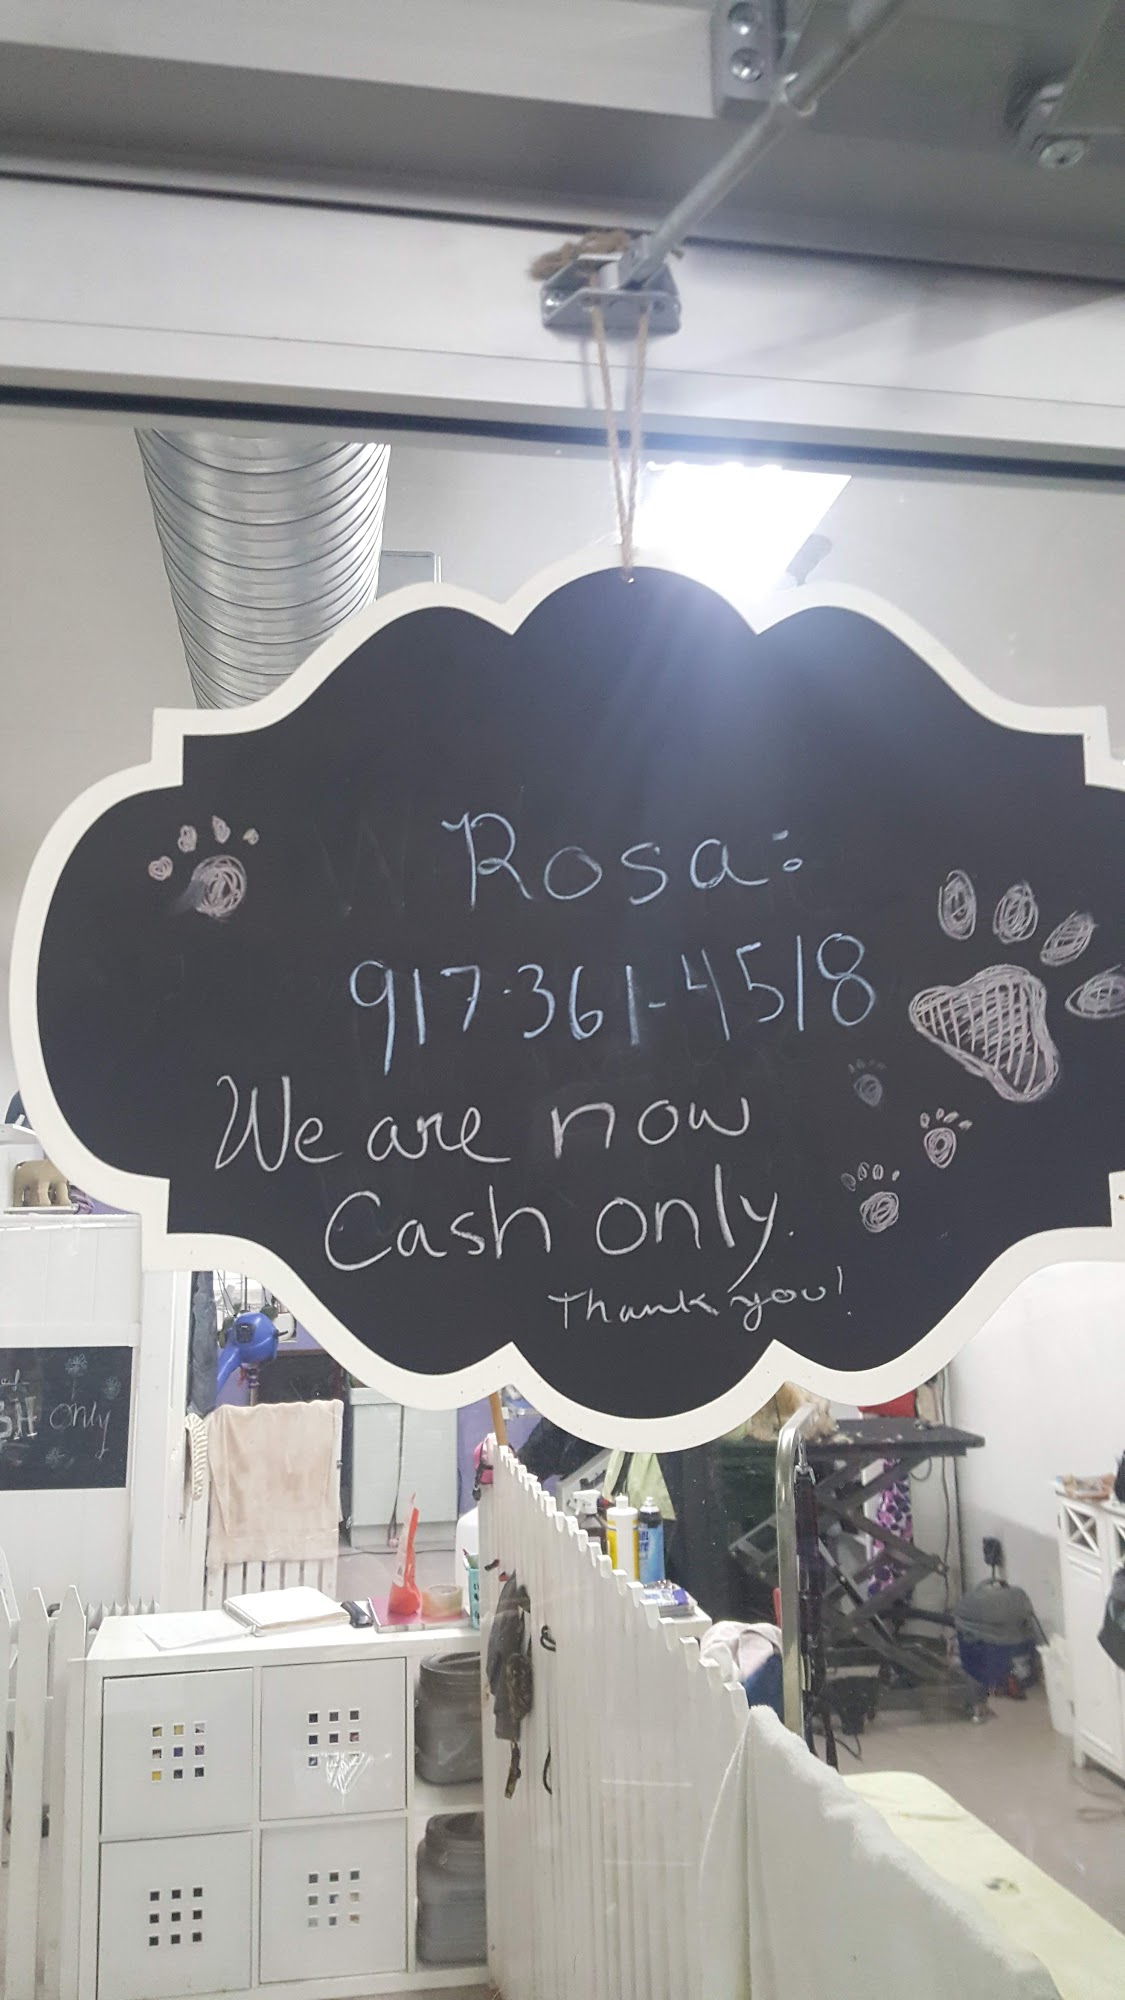 Rosa:
917-361-4518
We are now
Cash only.
Thank you!
only